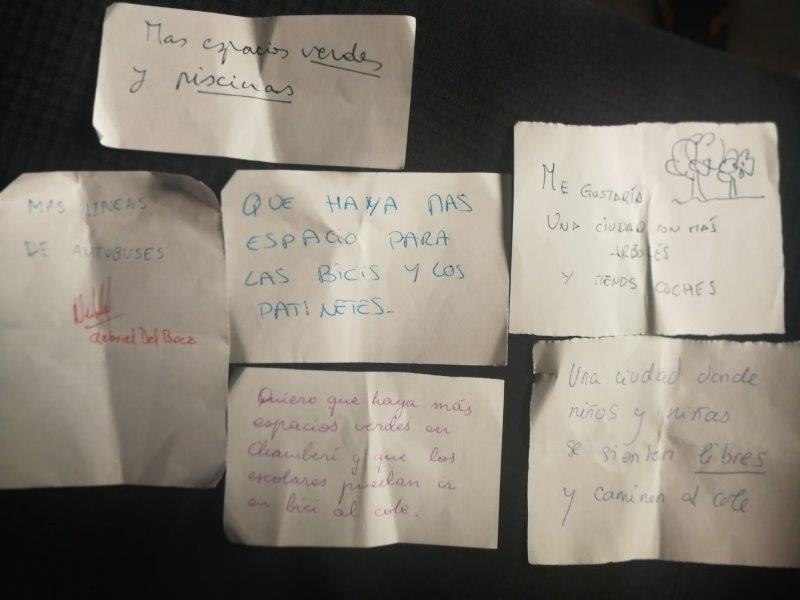 Mas espacios verdes
y piscinas
MAS LINEAS
DE AUTOBUSES
Gabriel Del Baca
QUE HAYA MAS
ESPACIO PARA
LAS BICIS Y LOS
PATINETES.
ME GUSTARÍA
UNA CIUDAD CON MÁS
ARBOLES
Y MENOS COCHES
Quiero que haya más
espacios verdes en
Chamberí y que los
escolares puedan ir
en bici al cole.
Una ciudad donde
niños y niñas
se sientan libres
y caminen al cole